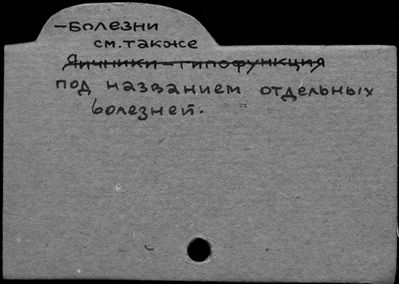 -Болезни
см. также
Яичники - гипофункция
под названием отдельных
болезней.